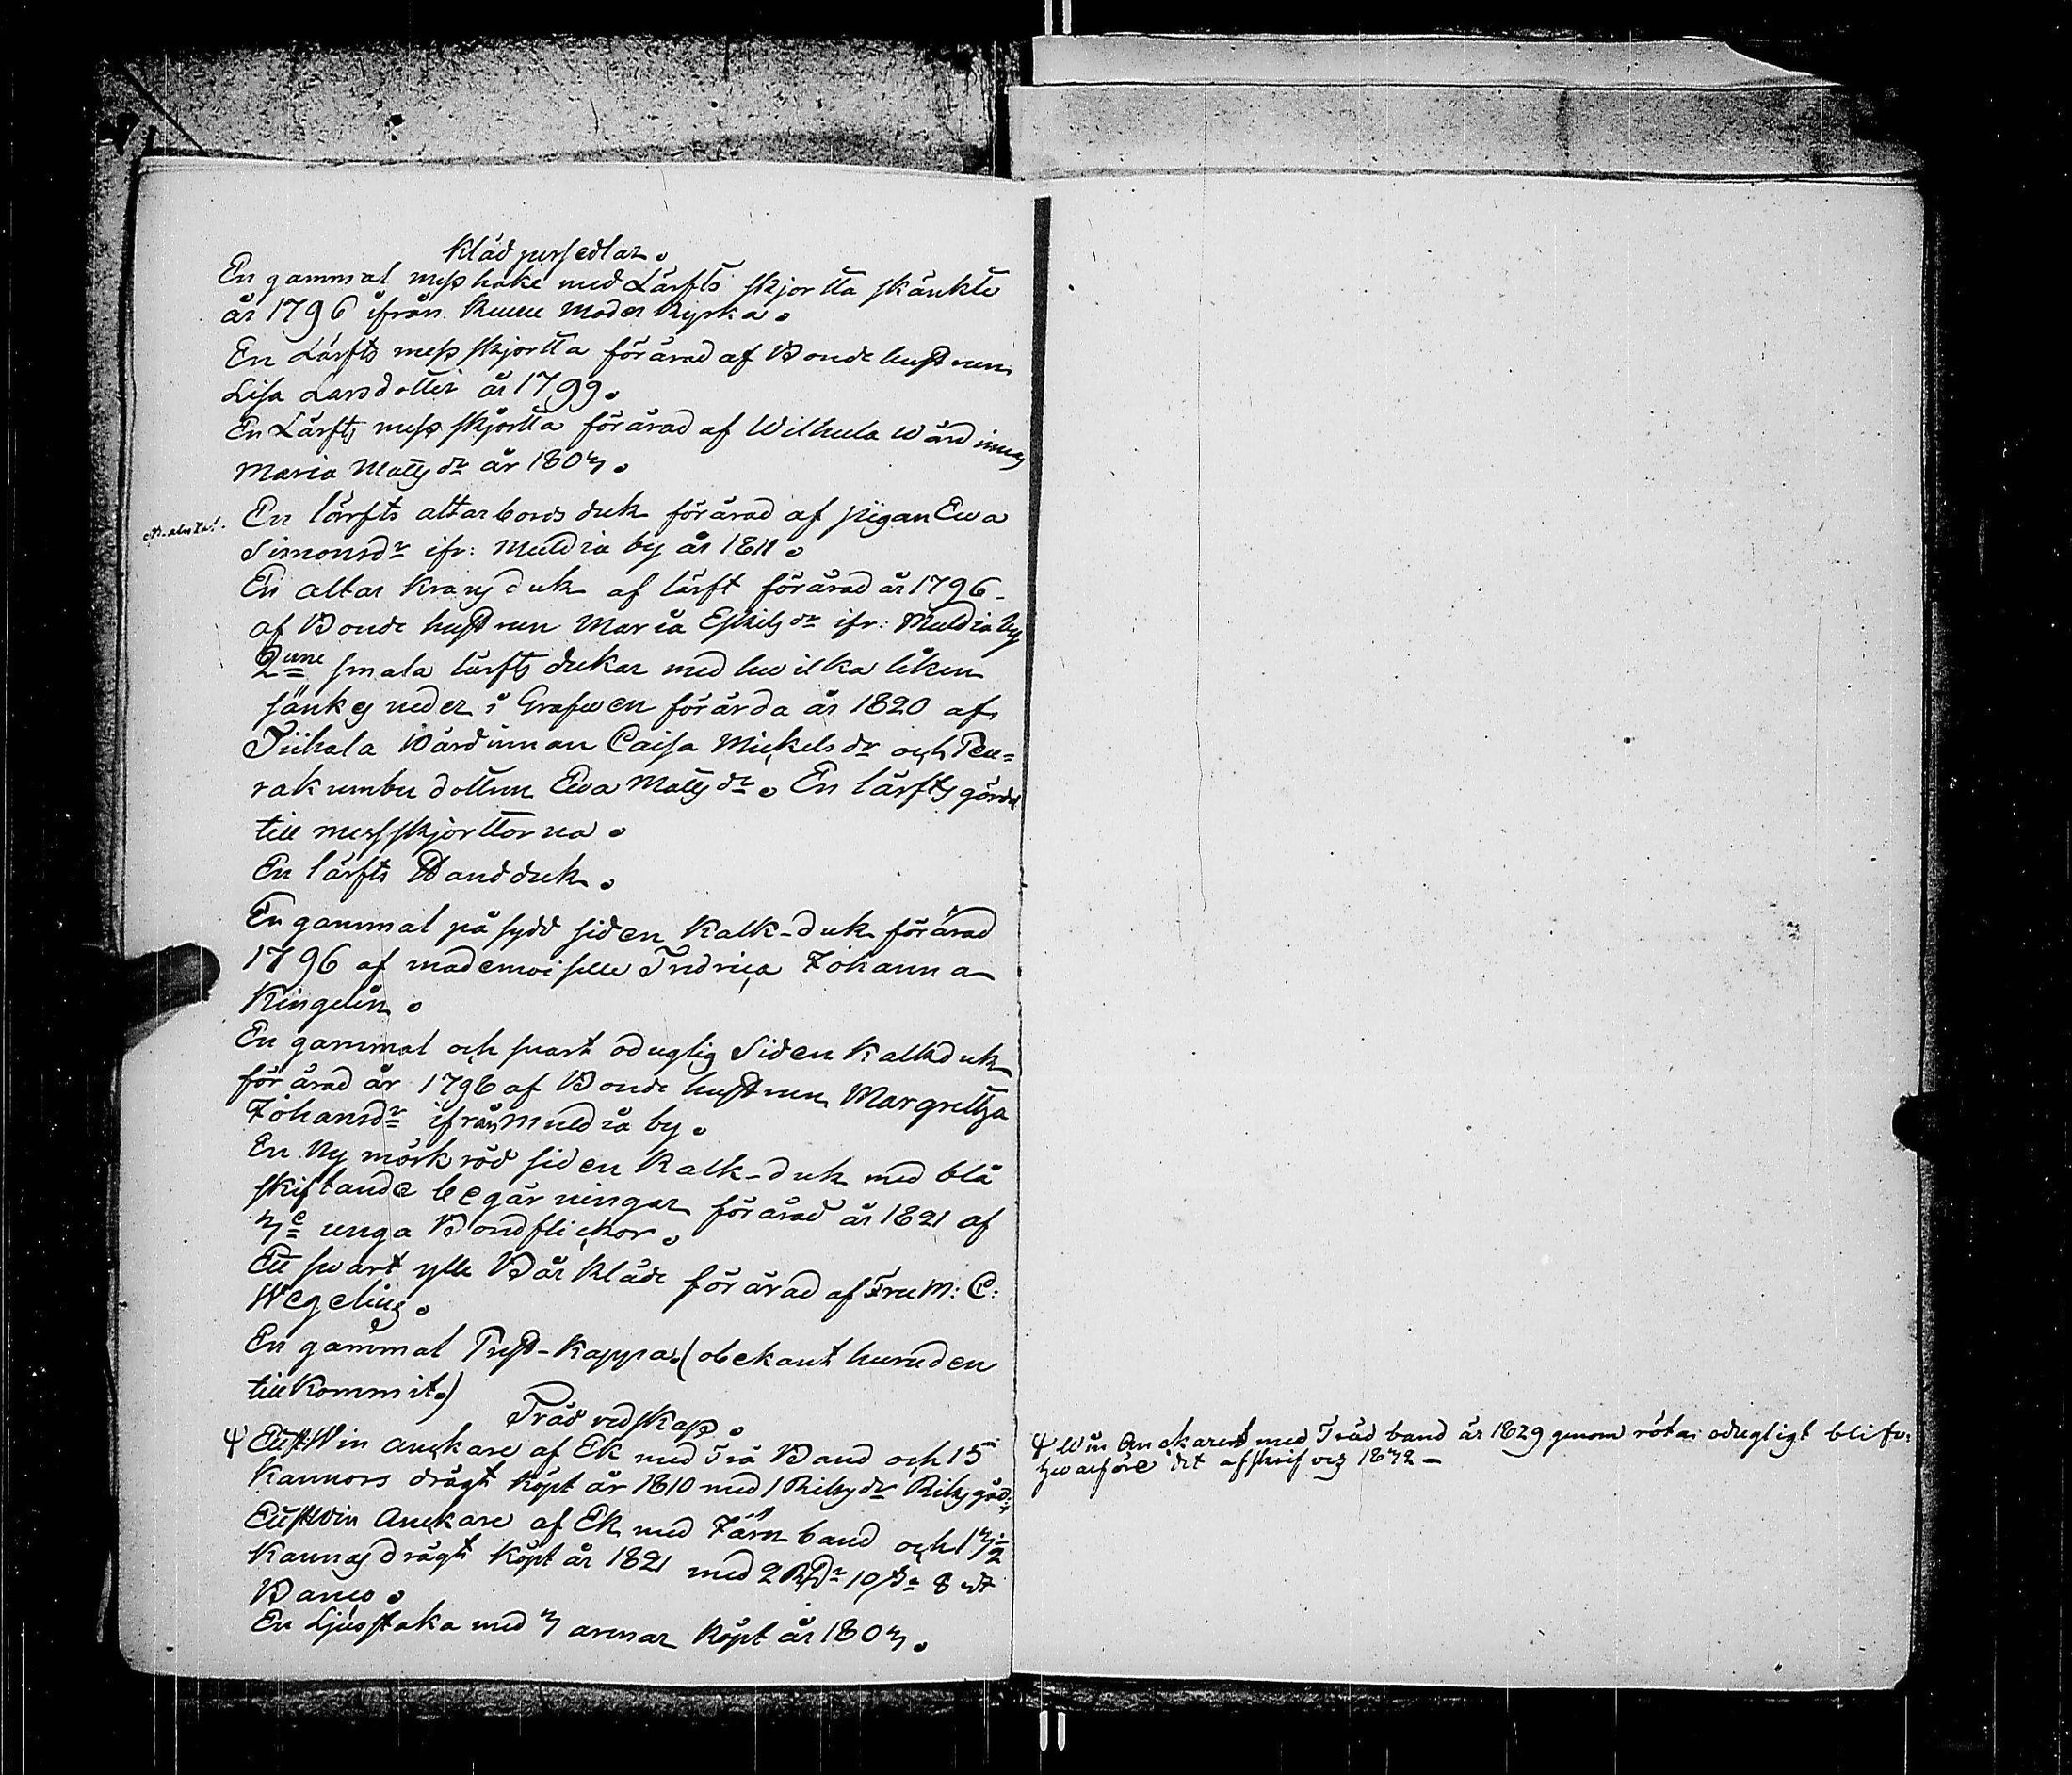 Klädpersedlar.
En gammal messhake med Lärfts skjortta skänkte
år 1796 ifrån Kumu Moder Kyrka.
En Lärfts mess skjortta förärad af Bonde hustrun
Lisa Larsdotter år 1799.
En Lärfts mess skjortta förärad af Wilhula wärdinnan
Maria Matts dr år 1803.
En lärfts altarbords duk förärad af pigan Ewa
Simonsdr ifr: Muldia by år 1811.
En altar Krans duk af lärft förärad år 1796
af Bonde hustrun Maria Eskils dr ifr: Muldia by
2ne smala lärfts dukar med hwilka liken
sänkes neder i Grafwen förärda år 1820 af
Tiihala Wärdinnan Caisa Mickels dr och Peu-
rakumbu dottren Ewa Matts dr. En lärfts gördel
till messskjorttorna.
En lärfts Handduk.
En gammal på sydd siden Kalk-duk förärad
1796 af mademoiselle Fredrica Johanna
Kingelin.
En gammal och snart oduglig Siden Kalkduk
förärad år 1796 af Bonde hustrun Margretha
Johansdr ifrån Muldia by.
En Ny mörk röd siden Kalk-duk med blå
skiftande begärningar förärad år 1821 af
3e unga Bondflickor.
Ett swart ylle Bår kläde förärad af Fru M: C:
Wegelius.
En gammal Prest-Kappa. (obekant huru den
till kommit.)
Träd redskap.
Ψ Ett Win anckare af Ek med Trä Band och 15
Kannors drägt köpt år 1810 med 1 Riksdr Riksgäd:
Ett Win Anckare af Ek med Järn band och 13½
Kannas drägt köpt år 1821 med 2 RDr 10 s. 8 rst
Banco.
En Ljusstaka med 3 armar köpt år 1803.
Ψ Win Anckaret med Träd band är 1829 genom rötan odugligt blifw:
hwarföre det afskrifves 1832 –